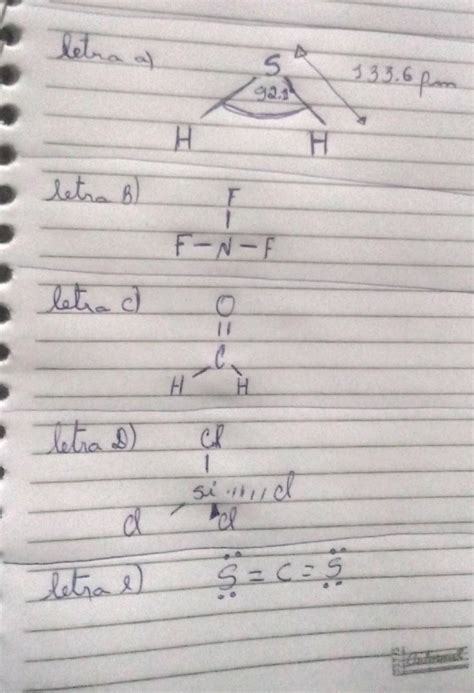 letra a)
S
133.6 pm
92.1
H H
letra B)
F
F-N-F
letra C)
O
C
H H
letra D)
Cl
Si Cl
Cl Cl
letra e)
S = C = S